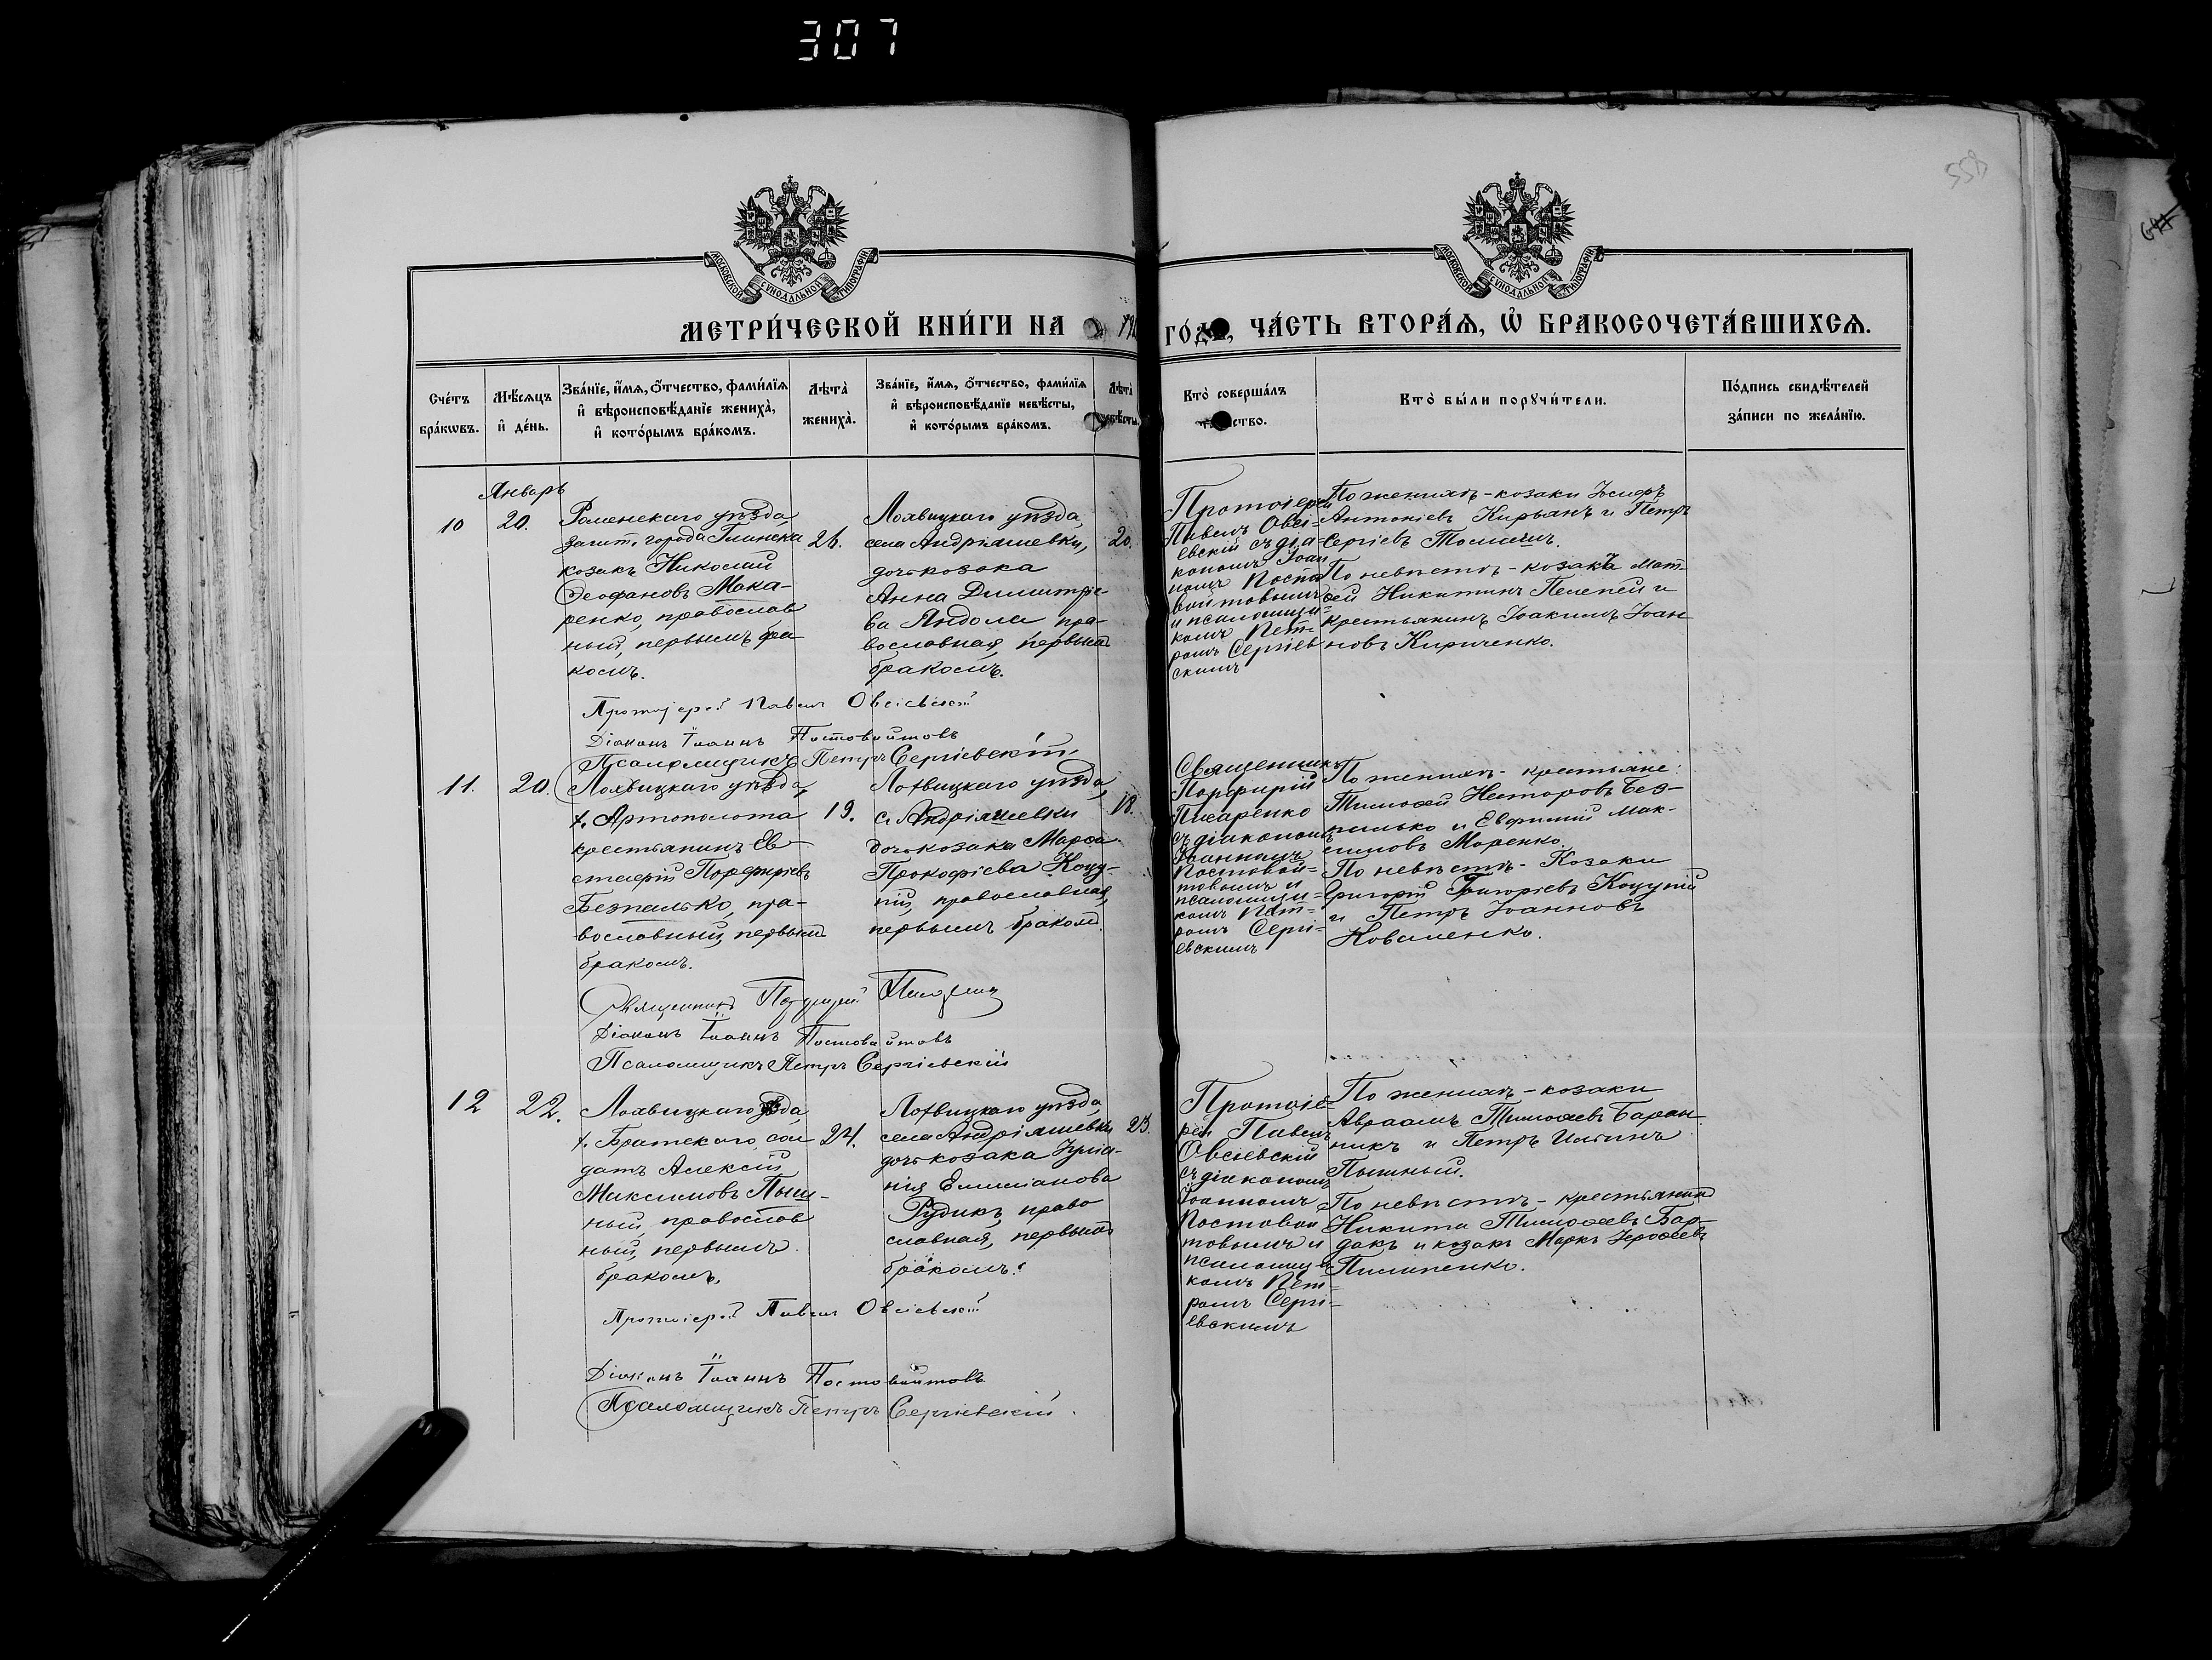 307
558
МОСКОВСКОЙ СѴНОДАЛЬНОЙ ТИПОГРАФІИ
МОСКОВСКОЙ СѴНОДАЛЬНОЙ ТИПОГРАФІИ
МЕТРИ́ЧЕСКОЙ КНИ́ГИ НА ГО́ДЪ, ЧА́СТЬ ВТОРА́Ѧ, Ѡ҆ БРАКОСОЧЕТА́ВШИХСѦ.
Сче́тъ бра́кѡвъ.
Мѣ́сѧцъ и҆ де́нь.
Зва́нїе, и҆́мѧ, ѻ҆́тчество, фами́лїѧ и҆ вѣроисповѣ́данїе жениха̀, и҆ кото́рымъ бра́комъ.
Лѣта̀ жениха̀.
Зва́нїе, и҆́мѧ, ѻ҆́тчество, фами́лїѧ и҆ вѣроисповѣ́данїе невѣ́сты, и҆ кото́рымъ бра́комъ.
Лѣта̀ невѣ́сты.
Кто̀ соверша́лъ
Кто̀ бы́ли порꙋчи́тели.
По́дпись свидѣ́телей за́писи по жела́нїю.
Январь
10
20.
Роменскаго уѣзда,
зашт. города Глинска
козакъ Николай
Ѳеофановъ Мака-
ренко, православ
ный, первымъ бра
комъ.
26.
Лохвицкаго уѣзда,
села Андріяшевки,
дочь козака
Анна Димитріе-
ва Яндола пра-
вославная, первымъ
бракомъ.
20.
Протоіерей
Павелъ Овсі-
евскій съ діа
кономъ Іоан
номъ Посто
войтовымъ
и псаломщи-
комъ Пет-
ромъ Сергіев
скимъ
По женихѣ - козаки Іосифъ
Антоніевъ Кирьянъ и Петръ
Сергіевъ
По невѣстѣ - козакъ Мат-
ѳей Никитинъ Пелепей и
крестьянинъ Іоакимъ Іоан
новъ Кириченко.
Протоіерей Павелъ Овсіевскій
Діаконъ Іоаннъ Постовойтовъ
Псаломщикъ Петръ Сергіевскій
11.
20.
Лохвицкаго уѣзда,
х. Артополота
крестьянинъ Ев-
стаѳій Порфиріевъ
Безпалько, пра-
вославный, первымъ
бракомъ.
19.
Лохвицкаго уѣзда,
с. Андріяшевки
дочь козака Марѳа
Прокофіева Коцу-
пій, православная,
первымъ бракомъ.
18.
Священникъ
Порфирій
Писаренко
съ діакономъ
Іоанномъ
Постовой-
товымъ и
псаломщи-
комъ Пет-
ромъ Серги-
евскимъ
По женихѣ - крестьяне:
Тимоѳей Несторовъ Без-
палько и Евфимій Мак-
симовъ Маренко.
По невѣстѣ - Козаки
Григорій Григоріевъ Коцупій
и Петръ Іоанновъ
Коваленко.
Священникъ Порфирій Писаренко
Діаконъ Іоаннъ Постовойтовъ
Псаломщикъ Петръ Сергіевскій
12
22.
Лохвицкаго уѣзда,
х. Братскаго, сол
датъ Алексій
Максимовъ Пыш-
ный, православ
ный, первымъ
бракомъ.
24.
Лохвицкаго уѣзда,
села Андріяшевки
дочь козака Іуліа-
нія Емиліанова
Рудикъ, право
славная, первымъ
бракомъ.
23.
Протоіе-
рей Павелъ
Овсіевскій
съ діакономъ
Іоанномъ
Постовой
товымъ и
псаломщи-
комъ Пет-
ромъ Сергі-
евскимъ
По женихѣ - козаки
Авраамъ Тимоѳеевъ Баран
никъ и Петръ Ильинъ
Пышный.
По невѣстѣ - крестьянинъ
Никита Тимоѳеевъ Бар-
дакъ и козакъ Маркъ Іероѳеевъ
Пилипенко.
Протоіерей Павелъ Овсіевскій
Діаконъ Іоаннъ Постовойтовъ
Псаломщикъ Петръ Сергіевскій.